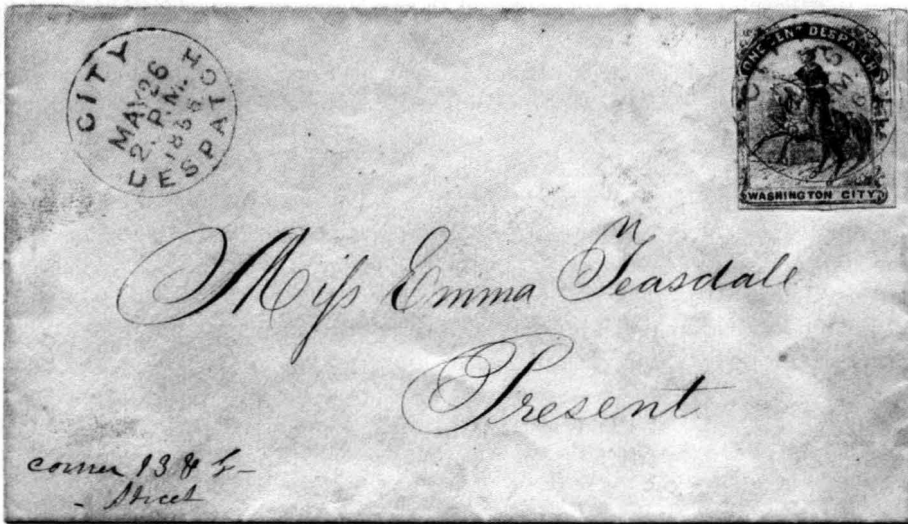 CITY DESPATCH
MAY 26
2. P.M.
185
ONE CENT DESPATCH
WASHINGTON CITY
Miss Emma Teasdale
Present
corner 13 &
- Street